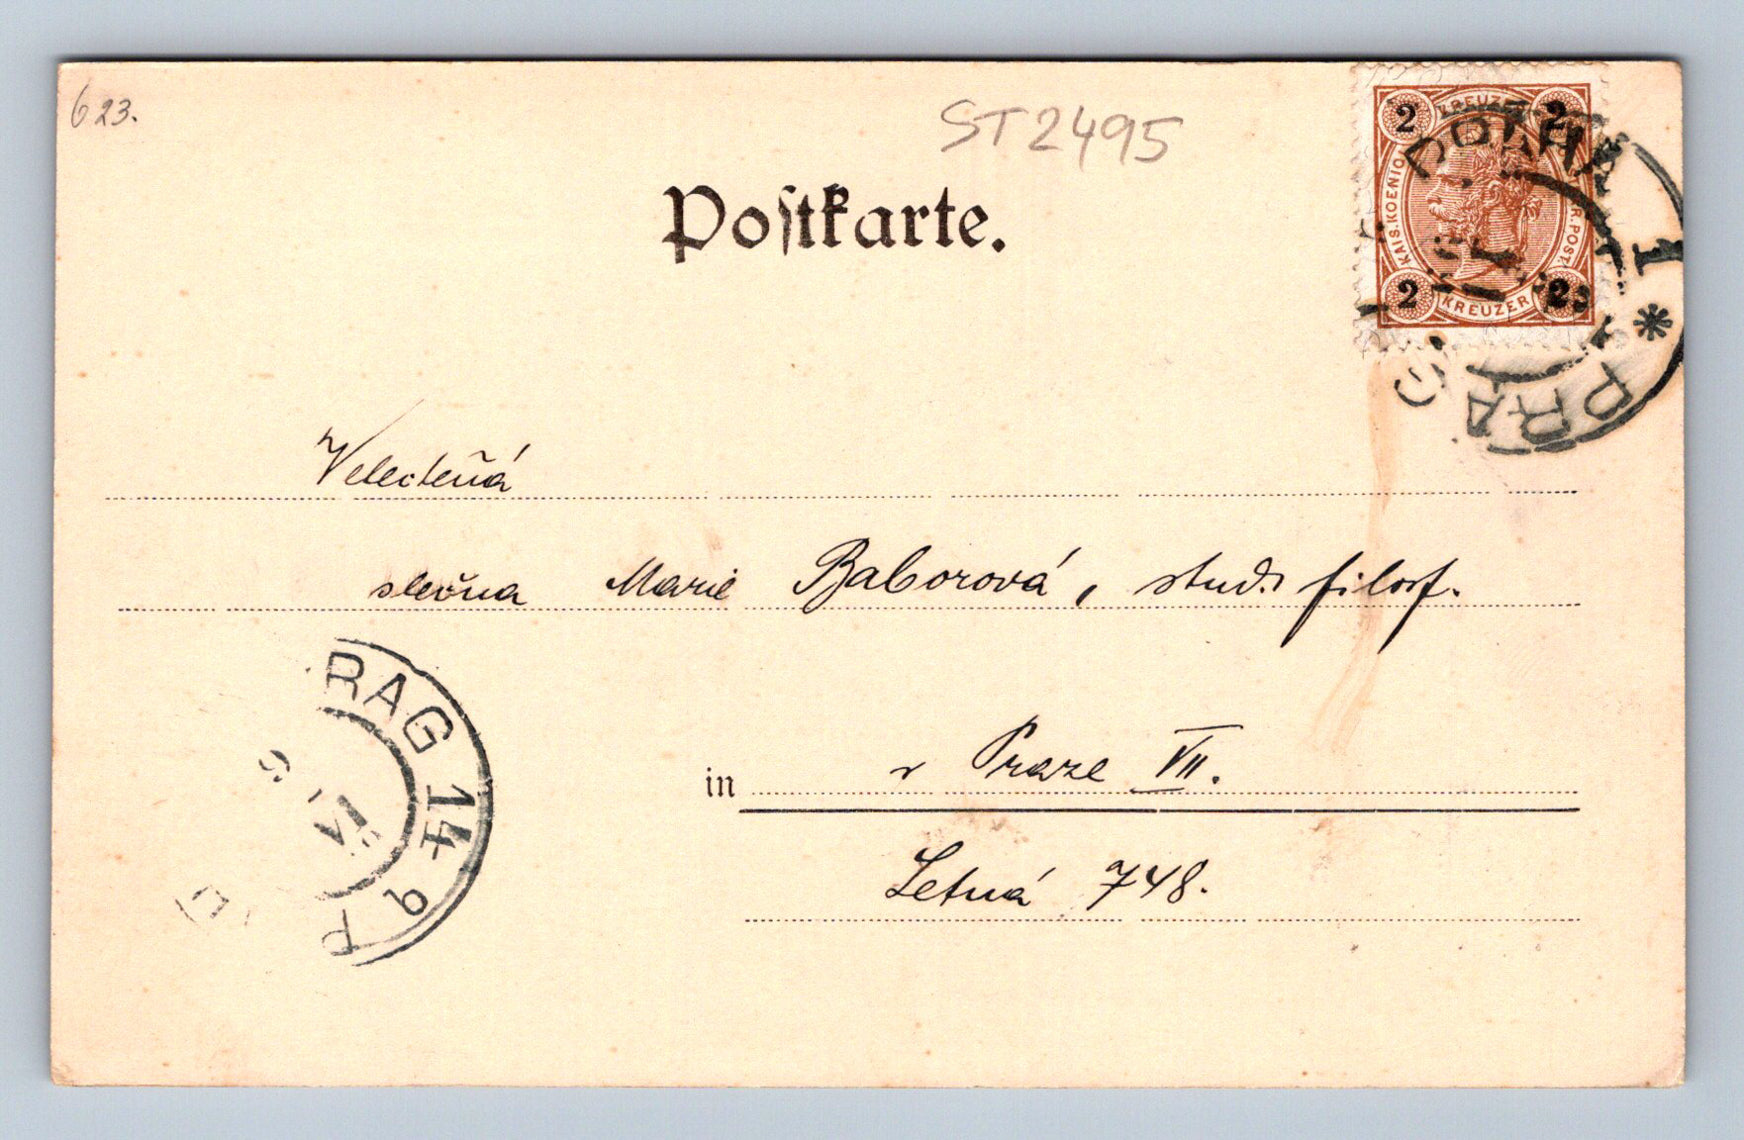 623.
ST2495
Postkarte.
2 KREUZER 2
KAIS. KOENIG.
R. POST.
2 KREUZER 2
1 *
PRAG
Velectěná
slečna Marie Baborová, stud. filosf.
in v Praze VII.
Letná 748.
RAG 14
VI